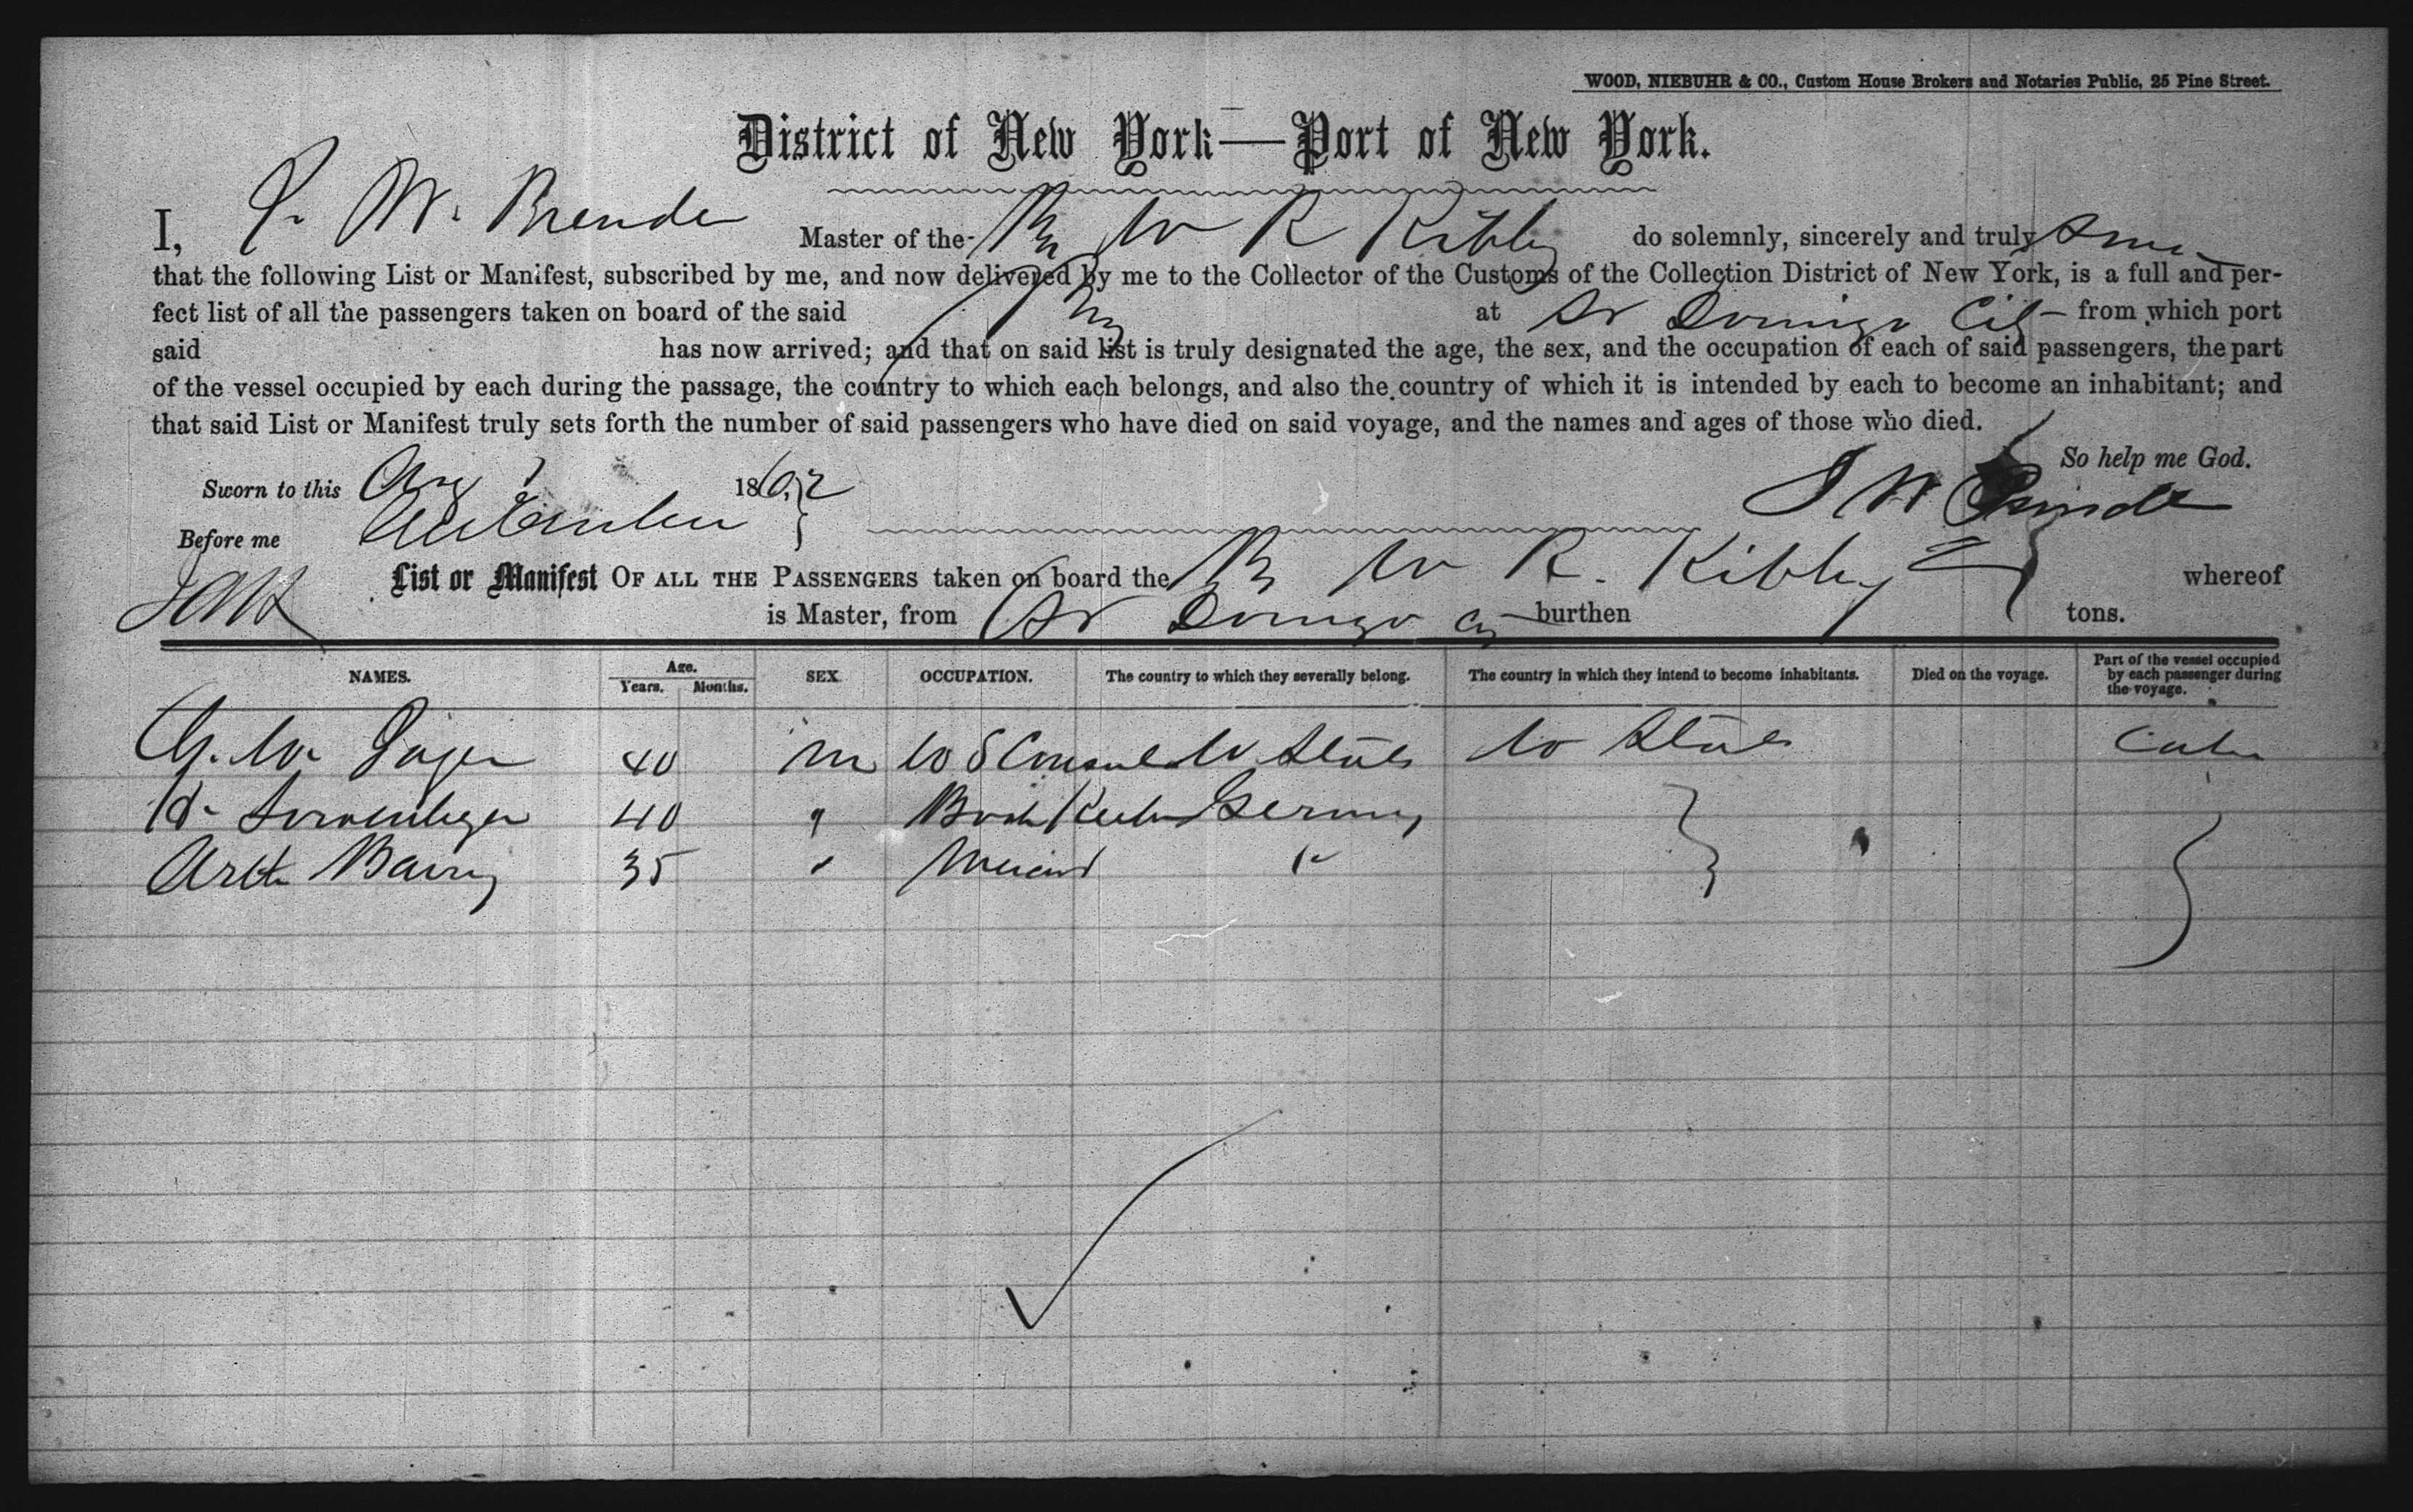 WOOD, NIEBUHR & CO., Custom House Brokers and Notaries Public, 25 Pine Street.
District of New York—Port of New York.
I, J. W. Master of the Br W R Kibby do solemnly, sincerely and truly
that the following List or Manifest, subscribed by me, and now delivered by me to the Collector of the Customs of the Collection District of New York, is a full and per-
fect list of all the passengers taken on board of the said at St Domingo City from which port
said has now arrived; and that on said list is truly designated the age, the sex, and the occupation of each of said passengers, the part
of the vessel occupied by each during the passage, the country to which each belongs, and also the country of which it is intended by each to become an inhabitant; and
that said List or Manifest truly sets forth the number of said passengers who have died on said voyage, and the names and ages of those who died.
So help me God.
Sworn to this Aug 1862 J W
Before me
List or Manifest OF ALL THE PASSENGERS taken on board the Br W R. Kibby whereof
is Master, from St Domingo Cy burthen tons.
NAMES. Age. Years. Months. SEX OCCUPATION. The country to which they severally belong. The country in which they intend to become inhabitants. Died on the voyage. Part of the vessel occupied by each passenger during the voyage.
40 m U S Consul U States U States Cabn
H. 40 " Book Keeper Germany
Arth Barry 35 " "